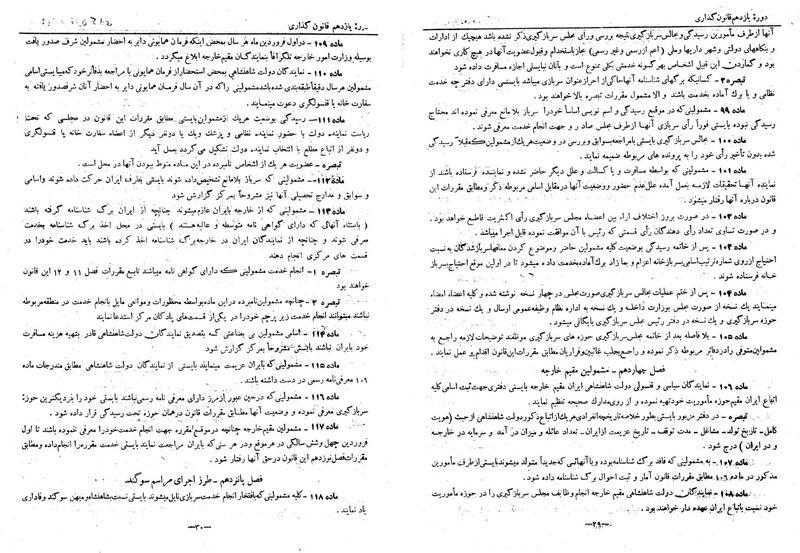 دورهٔ یازدهم قانون گذاری
آنها از طرف مأمورین رسیدگی و مجالس سربازگیری نتیجه بررسی ورأی مجلس سربازگیری ذکر نشده باشد هیچیک از ادارات
و بنگاههای دولتی و شهرداریها وملی (اعم ازرسمی وغیر رسمی) مجاز باستخدام وقبول عضویت آنها در هیچ کاری نخواهند
بود و گماردن این قبیل اشخاص بهرگونه خدمتی بکلی ممنوع است و بآنان نبایستی اجازه مسافرت داده شود
تبصره ۳ - کسانیکه برگهای شناسنامه آنها حاکی از احراز عنوان سربازی میباشد بایستی دارای دفترچه خدمت
نظامی و یا برگ آماده بخدمت باشند و الا مشمول مقررات تبصره بالا خواهند بود .
ماده ۹۹ - مشمولینی که در موقع رسیدگی و اسم نویسی اساساً خود را سرباز بلامانع معرفی نموده اند محتاج
رسیدگی نبوده بایستی فوراً رأی سربازی آنها از طرف مجلس صادر و جهت انجام خدمت معرفی شوند .
ماده ۱۰۰ - مجالس سربازگیری بایستی با مراجعه بسوابق و بررسی در وضعیت هریک از مشمولین که قبلا رسیدگی
شده بدون تأخیر رأی خود را به پرونده های مربوطه ضمیمه نمایند .
ماده ۱۰۱ - مشمولینی که بواسطه مسافرت و یا کسالت و علل دیگر حاضر نشده و نماینده نفرستاده باشند از
نماینده آنها تحقیقات لازمه بعمل آمده علل عدم حضور و وضعیت آنها در مقابل اسامی مربوطه ذکر و مطابق مقررات این
قانون درباره آنها رفتار میشود .
ماده ۱۰۲ - در صورت بروز اختلاف آراء بین اعضاء مجلس سربازگیری رأی اکثریت قاطع خواهد بود .
و در صورت تساوی تعداد رأی دهندگان رأی قسمتی که رئیس با آن موافقت نموده قابل اجرا میباشد .
ماده ۱۰۳ - پس از خاتمه رسیدگی بوضعیت کلیه مشمولین حاضر و موضوع کردن معافها سربازشدگان به نسبت
احتیاج از روی شماره ترتیب اسامی بسربازخانه اعزام و بمازاد برگ آماده بخدمت داده میشود تا در اولین موقع احتیاج بسرباز
خانه فرستاده شوند .
ماده ۱۰۴ - پس از ختم عملیات مجلس سربازگیری صورت مجلس در چهار نسخه نوشته شده و کلیه اعضاء امضاء
مینمایند یک نسخه از صورت مجلس بوزارت داخله و یک نسخه به اداره نظام وظیفه عمومی ارسال و یک نسخه در دفتر
حوزه سربازگیری و یک نسخه در دفتر رئیس مجلس سربازگیری بایگانی میشود .
ماده ۱۰۵ - بلافاصله بعد از خاتمه مجلس سربازگیری حوزه های سربازگیری موظفند توضیحات لازمه راجع به
مشمولین متوفی را در دفاتر مربوطه ذکر نموده و راجع بجلب غائبین و فراریان مطابق مقررات این قانون اقدام بر عمل نمایند .
فصل چهاردهم - مشمولین مقیم خارجه
ماده ۱۰۶ - نمایندگان سیاسی و قنسولی دولت شاهنشاهی ایران مقیم خارجه بایستی دفتری جهت ثبت اسامی کلیه
اتباع ایران مقیم حوزه مأموریت خود تهیه نموده و از روی مدارک صحیحه تنظیم نمایند .
تبصره - در دفتر مزبور بایستی بطور خلاصه تاریخچه انفرادی هر یک از اتباع ذکور دولت شاهنشاهی از حیث (هویت
کامل - تاریخ تولد - مشاغل - مدت توقف - تاریخ عزیمت از ایران - تعداد عائله و میزان درآمد و سرمایه در خارجه
و در ایران) درج شود .
ماده ۱۰۷ - به مشمولینی که فاقد برگ شناسنامه بوده و یا آنهائی که جدیداً متولد میشوند بایستی از طرف مأمورین
مذکور در ماده ۱۰۶ مطابق مقررات قانون آمار و ثبت احوال برگ شناسنامه داده شود .
ماده ۱۰۸ - نمایندگان دولت شاهنشاهی مقیم خارجه انجام وظایف مجلس سربازگیری را در حوزه مأموریت
خود نسبت باتباع ایران عهده دار خواهند بود .
-۲۹-
دورهٔ یازدهم قانون گذاری
ماده ۱۰۹ - در اول فروردین ماه هر سال بمحض اینکه فرمان همایونی دایر به احضار مشمولین شرف صدور یافت
بوسیله وزارت امور خارجه تلگرافاً بنمایندگان مقیم خارجه ابلاغ میگردد .
ماده ۱۱۰ - نمایندگان دولت شاهنشاهی بمحض استحضار از فرمان همایونی با مراجعه بدفاتر خود که میبایستی اسامی
مشمولین هر سال دقیقاً طبقه بندی شده باشد مشمولینی را که در آن سال فرمان همایونی دایر به احضار آنان شرف صدور یافته به
سفارت خانه یا قنسولگری دعوت مینمایند .
ماده ۱۱۱ - رسیدگی بوضعیت هر یک از مشمولین بایستی مطابق مقررات این قانون در مجلسی که تحت
ریاست نماینده دولت با حضور نماینده نظامی و پزشک و یک یا دو نفر دیگر از اعضاء سفارت خانه یا قنسولگری
و دو نفر از اتباع مطلع با انتخاب نماینده دولت تشکیل میگردد بعمل آید
تبصره - عضویت هر یک از اشخاص نامبرده در این ماده منوط ببودن آنها در محل است .
ماده ۱۱۲ - مشمولینی که سرباز بلامانع تشخیص داده شوند بایستی بطرف ایران حرکت داده شوند و اسامی
و سوابق و مدارج تحصیلی آنها نیز مشروحاً بمرکز گزارش شود
ماده ۱۱۳ - مشمولینی که از خارجه بایران عازم میشوند چنانچه از ایران برگ شناسنامه گرفته باشند
( باستثناء آنهائی که دارای گواهی نامه متوسطه و عالیه هستند ) بایستی در محل اخذ برگ شناسنامه بخدمت
معرفی شوند و چنانچه از نمایندگان ایران در خارجه برگ شناسنامه اخذ کرده باشند باید خدمت خود را در
قسمت های مرکزی انجام دهند
تبصره ۱ - انجام خدمت مشمولینی که دارای گواهی نامه میباشند تابع مقررات فصل ۱۱ و ۱۲ این قانون
خواهند بود
تبصره ۲ - چنانچه مشمولین نامبرده در این ماده بواسطه محظورات و موانعی مایل بانجام خدمت در منطقه مربوطه
نباشند میتوانند انجام خدمت زیر پرچم خود را در یکی از قسمت های پادگان مرکز استدعا نمایند
ماده ۱۱۴ - اسامی مشمولین بی بضاعتی که بتصدیق نمایندگان دولت شاهنشاهی قادر بتهیه هزینه مسافرت
خود بایران نباشند بایستی مشروحاً بمرکز گزارش شود
ماده ۱۱۵ - مشمولینی که بایران عزیمت مینمایند بایستی از نمایندگان دولت شاهنشاهی مطابق مندرجات ماده
۱۰۶ معرفی نامه رسمی در دست داشته باشند .
ماده ۱۱۶ - مشمولینی که در حین عبور از مرز دارای معرفی نامه رسمی نباشند بایستی خود را بنزدیکترین حوزهٔ
سربازگیری معرفی نموده و وضعیت آنها مطابق مقررات قانون در همان حوزه تحت رسیدگی قرار داده شود .
ماده ۱۱۷ - مشمولین مقیم خارجه چنانچه در موقع مقرره جهت انجام خدمت خود را معرفی ننموده باشند تا اول
فروردین چهل و شش سالگی در هر موقع و در هر سنی که بایران مراجعت نمایند بایستی خدمت مقرره را انجام داده و مطابق
مقررات فصل نوزدهم این قانون در حق آنها رفتار شود .
فصل پانزدهم - طرز اجرای مراسم سوگند
ماده ۱۱۸ - کلیه مشمولینی که بافتخار انجام خدمت سربازی نایل میشوند بایستی نسبت بشاهنشاه و میهن سوگند وفاداری
یاد نمایند .
-۳۰-